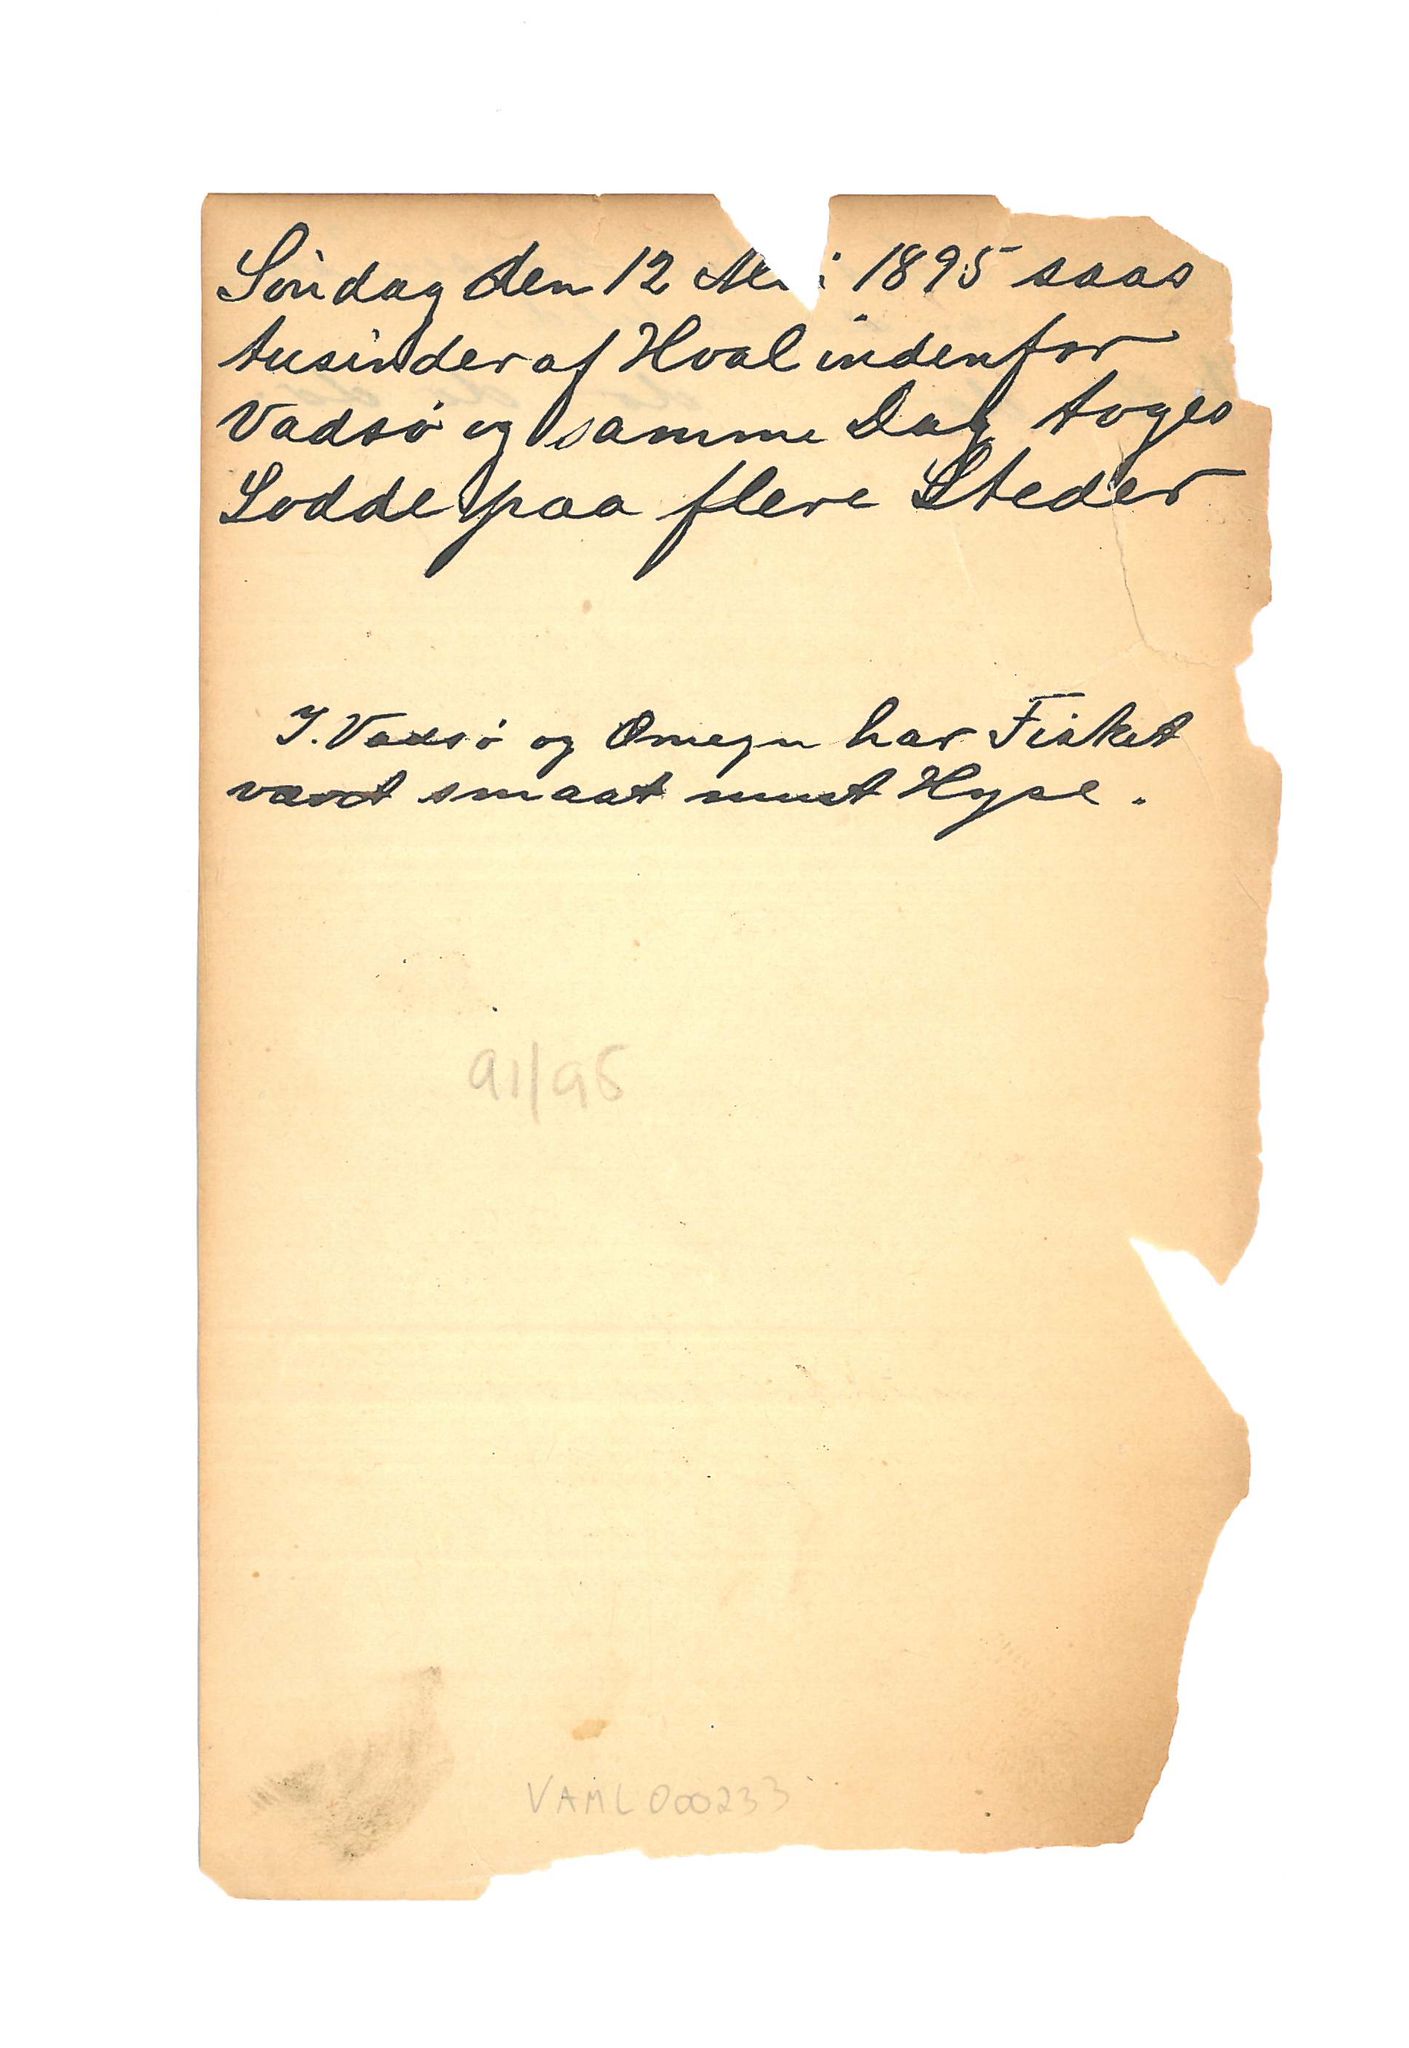 Søndag den 12 M i 1895 saas
tusinder af Hval indenfor
Vadsø og samme Dag toges
Lodde paa flere Steder
I. Vadsø og Omegn har Fisket
været smaat mest Hyse.
91/95
VAML 000233